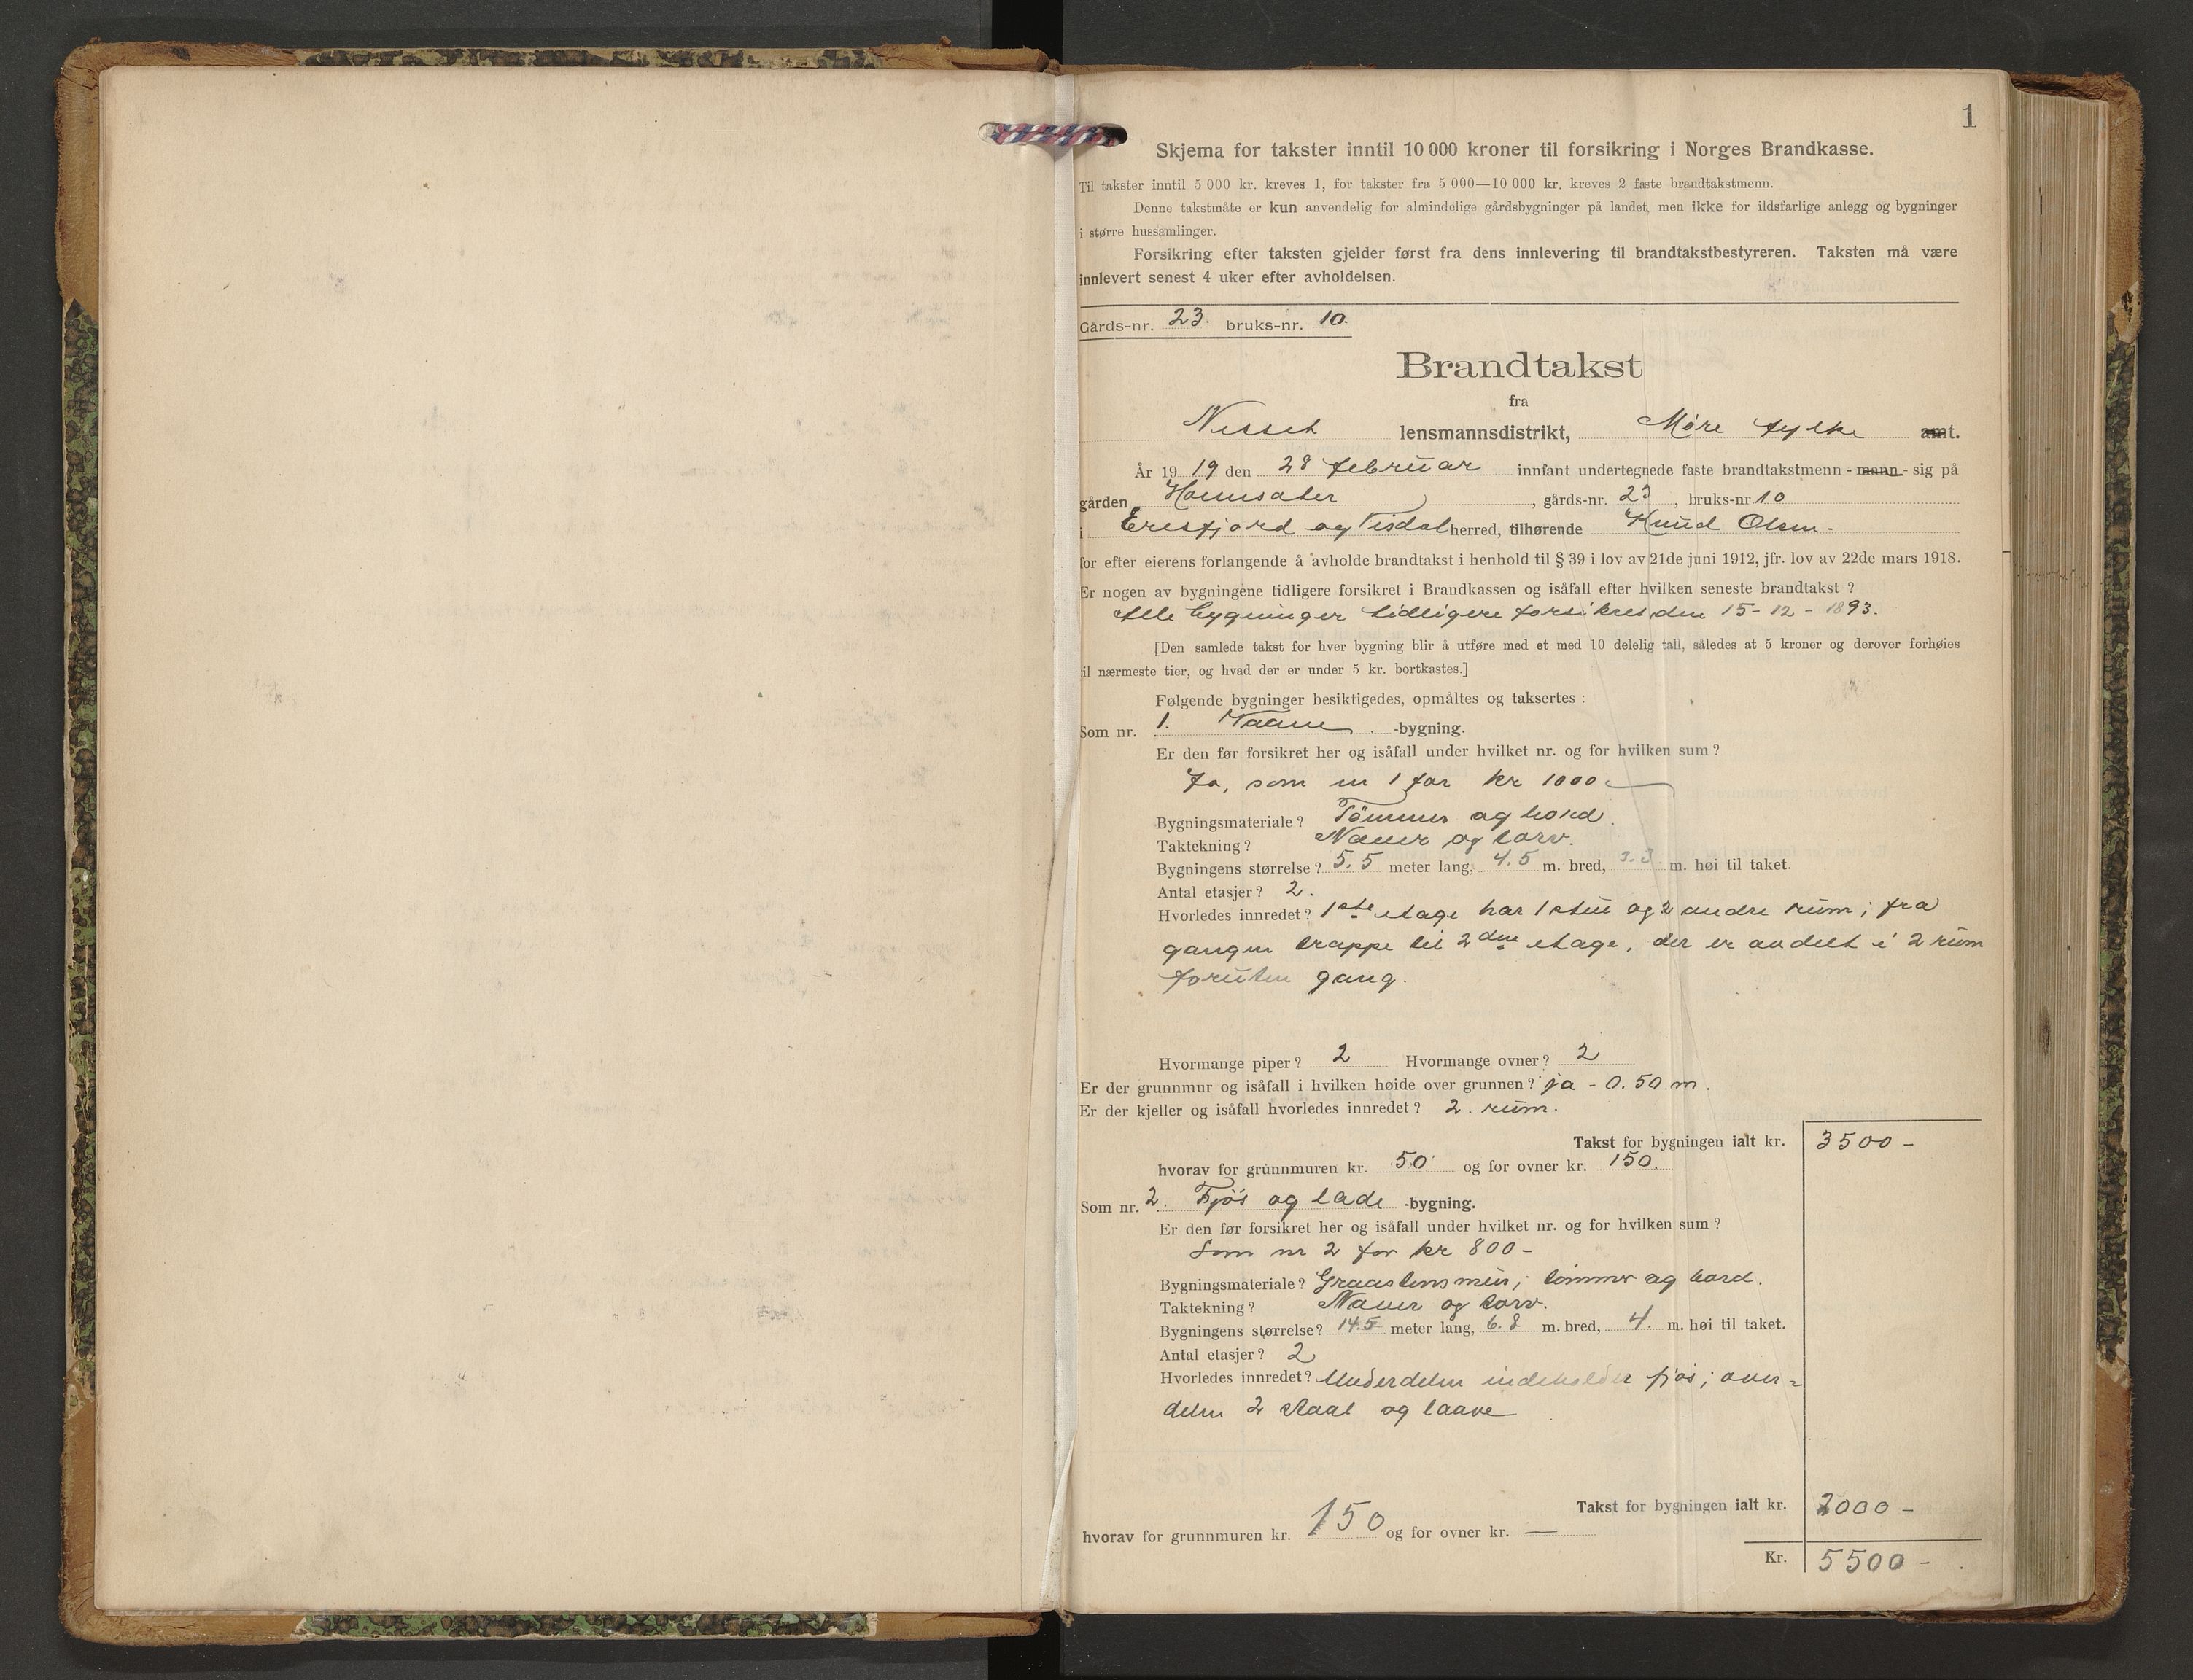 1
Skjema for takster inntil 10 000 kroner til forsikring i Norges Brandkasse.
Til takster inntil 5 000 kr. kreves 1, for takster fra 5 000—10 000 kr. kreves 2 faste brandtakstmenn.
Denne takstmåte er kun anvendelig for almindelige gårdsbygninger på landet, men ikke for ildsfarlige anlegg og bygninger
i større hussamlinger.
Forsikring efter taksten gjelder først fra dens innlevering til brandtakstbestyreren. Taksten må være
innlevert senest 4 uker efter avholdelsen.
Gårds-nr. 23. bruks-nr. 10.
Brandtakst
fra
Nesset lensmannsdistrikt, Møre fylke amt.
År 19 19 den 28 februar innfant undertegnede faste brandtakstmenn - mann - sig på
gården , gårds-nr. 23 , bruks-nr 10
i Eresfjord og Visdal herred, tilhørende Knud Olsen.
for efter eierens forlangende å avholde brandtakst i henhold til § 39 i lov av 21de juni 1912, jfr. lov av 22de mars 1918.
Er nogen av bygningene tidligere forsikret i Brandkassen og isåfall efter hvilken seneste brandtakst ?
Alle bygninger tidligere forsikret den 15-12-1893.
[Den samlede takst for hver bygning blir å utføre med et med 10 delelig tall, således at 5 kroner og derover forhøies
til nærmeste tier, og hvad der er under 5 kr. bortkastes.]
Følgende bygninger besiktigedes, opmåltes og taksertes :
Som nr. 1. Vaane -bygning.
Er den før forsikret her og isåfall under hvilket nr. og for hvilken sum ?
Ja, som nr 1 for kr 1000-
Bygningsmateriale ? Tömmer og bord.
Taktekning ? Naver og torv.
Bygningens størrelse ? 5.5 meter lang, 4.5 m. bred, 3.3 m. høi til taket.
Antal etasjer ? 2.
Hvorledes innredet ? 1ste etage har 1 stue og 2 andre rum; fra
gangen trappe til 2den etage, der er avdelt i 2 rum
foruten gang.
Hvormange piper ? 2 Hvormange ovner ? 2
Er der grunnmur og isåfall i hvilken høide over grunnen ? ja - 0.50 m.
Er der kjeller og isåfall hvorledes innredet ? 2. rum.
Takst for bygningen ialt kr. 3500 -
hvorav for grunnmuren kr. 50 og for ovner kr. 150.
Som nr. 2. Fjös og lade -bygning.
Er den før forsikret her og isåfall under hvilket nr. og for hvilken sum ?
Som nr 2 for kr 800-
Bygningsmateriale ? Graastensmur; tömmer og bord.
Taktekning ? Naver og torv.
Bygningens størrelse ? 14.5 meter lang, 6.8 m. bred, 4. m. høi til taket.
Antal etasjer ? 2
Hvorledes innredet ? Underdelen indeholder fjös; over-
delen 2 staal og laave
Takst for bygningen ialt kr. 2000 -
hvorav for grunnmuren kr. 150 og for ovner kr. —
Kr. 5500 -